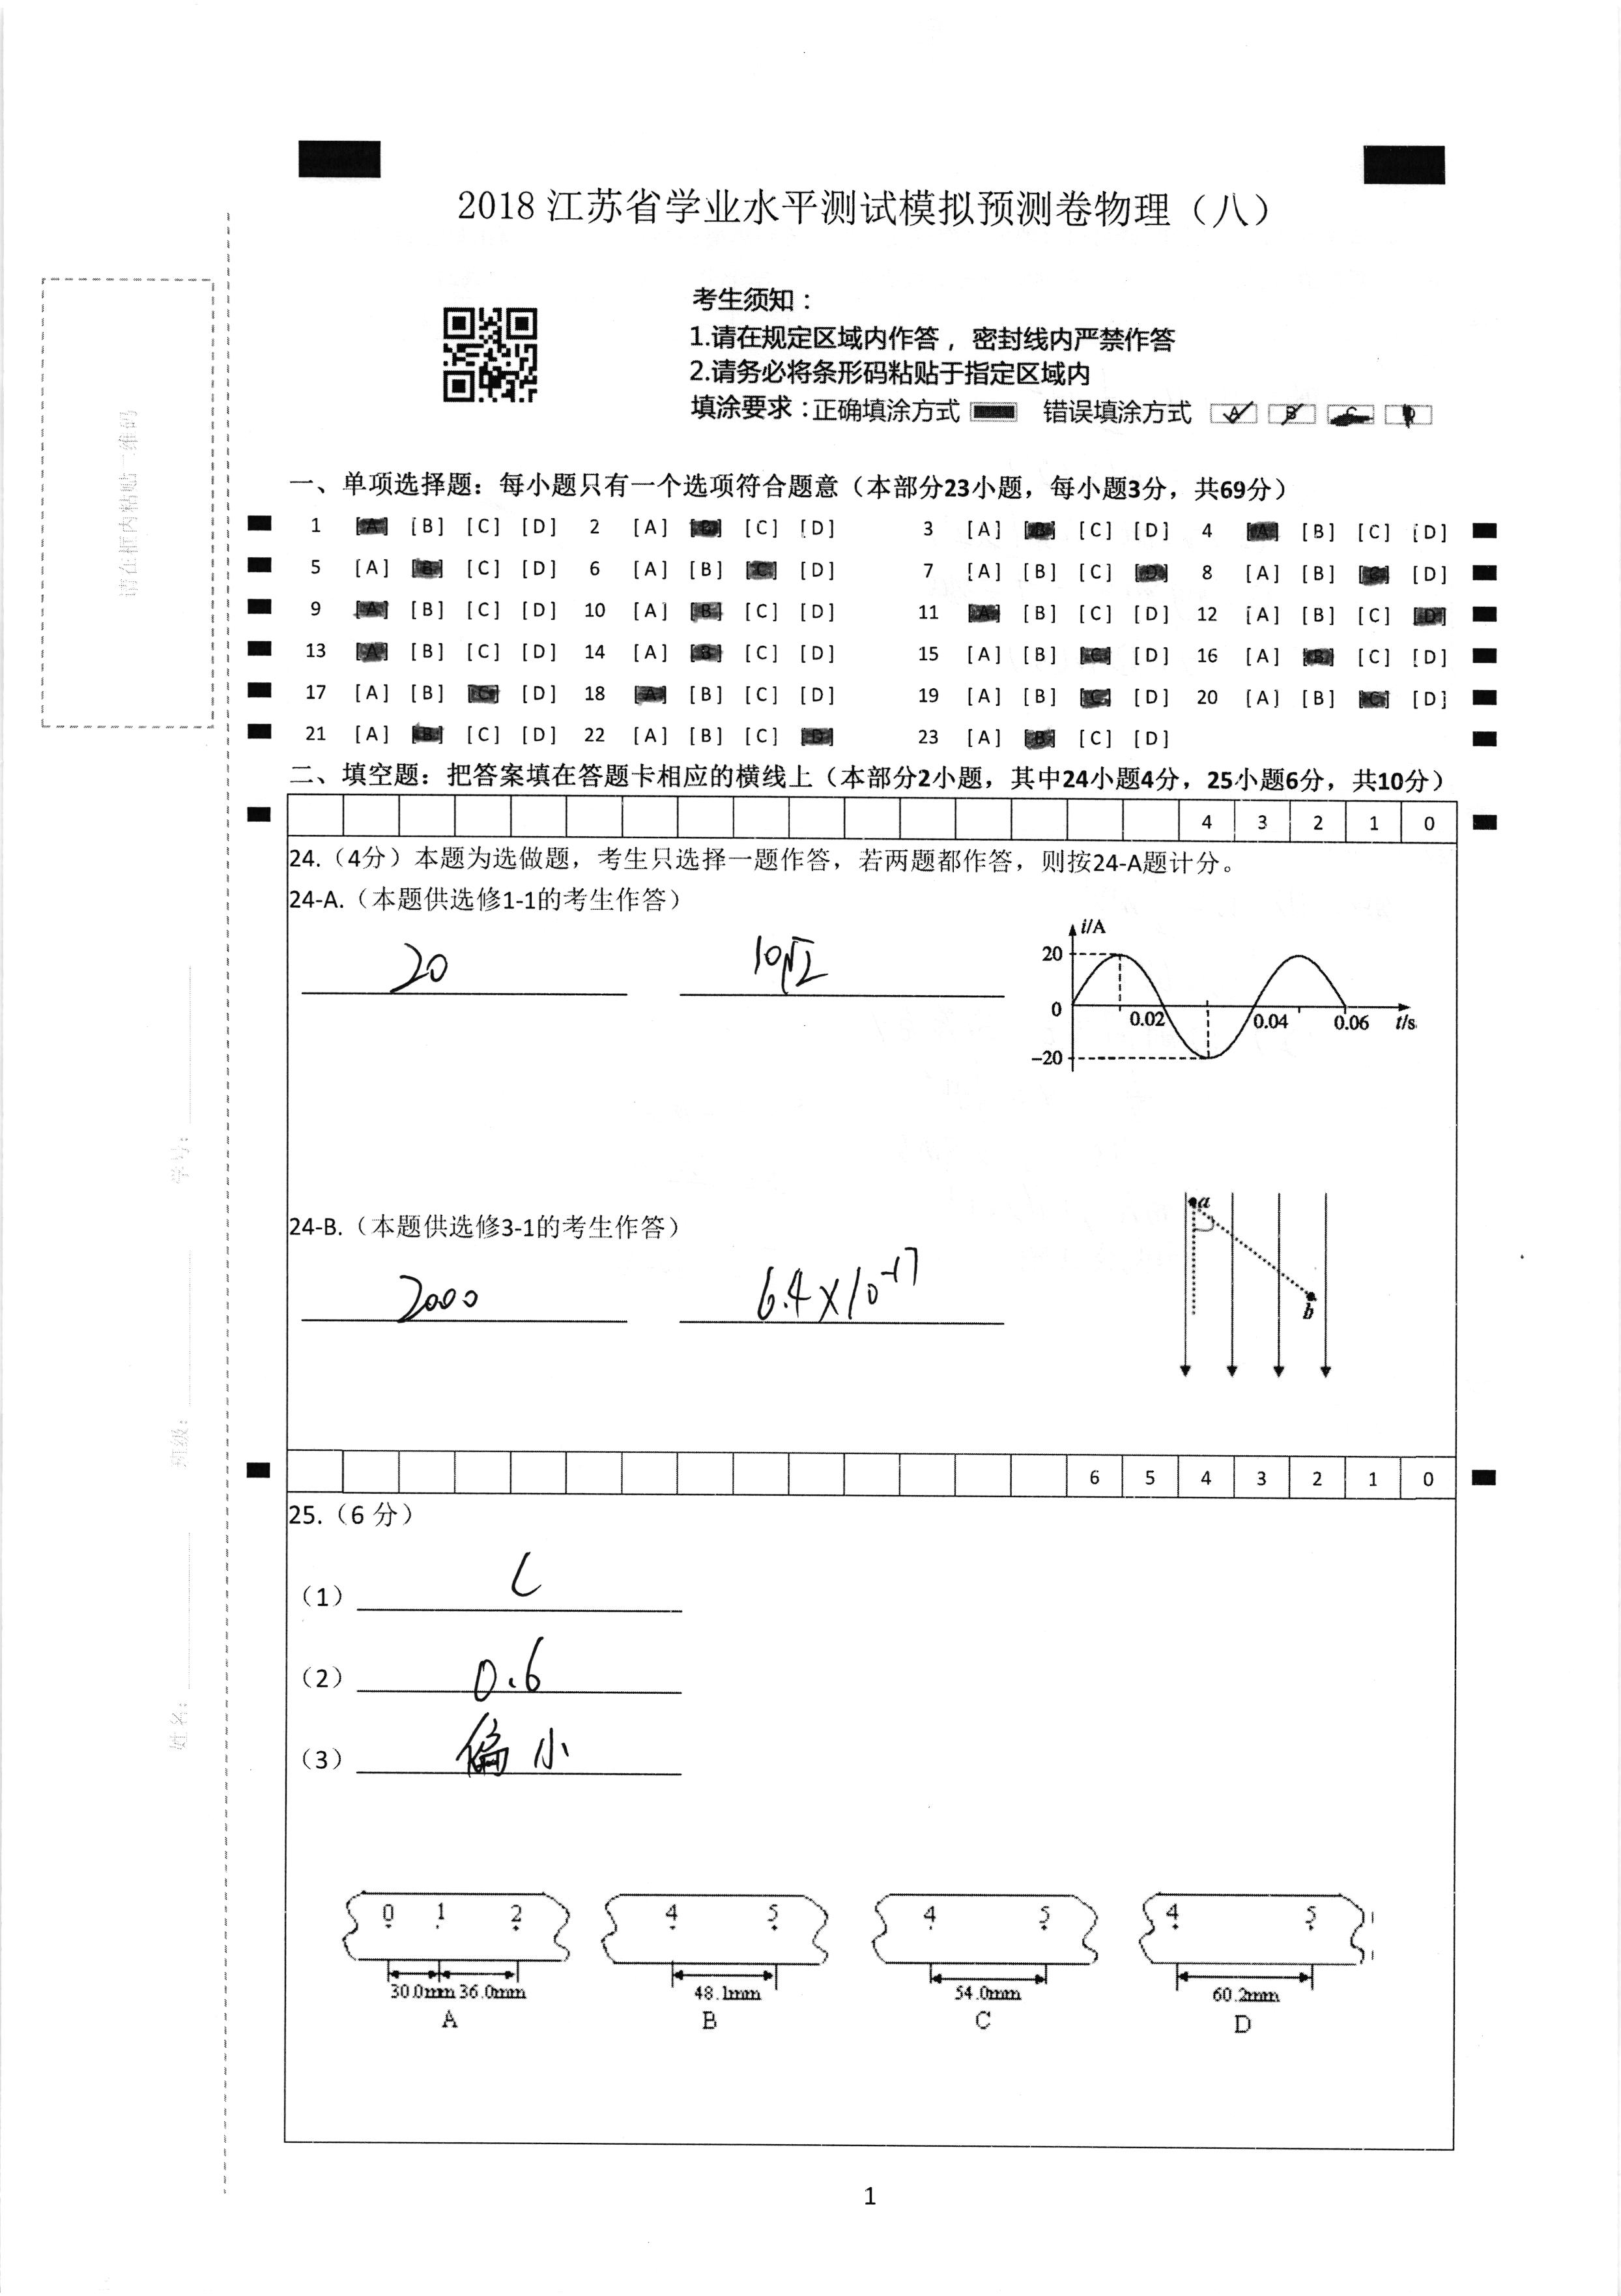 2018 江苏省学业水平测试模拟预测卷物理（八）
考生须知：
1.请在规定区域内作答，密封线内严禁作答
2.请务必将条形码粘贴于指定区域内
填涂要求：正确填涂方式 错误填涂方式 A B C D
请在框内粘贴二维码
学号：
班级：
姓名：
一、单项选择题：每小题只有一个选项符合题意（本部分23小题，每小题3分，共69分）
1 [A] [B] [C] [D] 2 [A] [B] [C] [D] 3 [A] [B] [C] [D] 4 [A] [B] [C] [D]
5 [A] [B] [C] [D] 6 [A] [B] [C] [D] 7 [A] [B] [C] [D] 8 [A] [B] [C] [D]
9 [A] [B] [C] [D] 10 [A] [B] [C] [D] 11 [A] [B] [C] [D] 12 [A] [B] [C] [D]
13 [A] [B] [C] [D] 14 [A] [B] [C] [D] 15 [A] [B] [C] [D] 16 [A] [B] [C] [D]
17 [A] [B] [C] [D] 18 [A] [B] [C] [D] 19 [A] [B] [C] [D] 20 [A] [B] [C] [D]
21 [A] [B] [C] [D] 22 [A] [B] [C] [D] 23 [A] [B] [C] [D]
二、填空题：把答案填在答题卡相应的横线上（本部分2小题，其中24小题4分，25小题6分，共10分）
4 3 2 1 0
24.（4分）本题为选做题，考生只选择一题作答，若两题都作答，则按24-A题计分。
24-A.（本题供选修1-1的考生作答）
20 10√2
i/A
20
0 0.02 0.04 0.06 t/s
-20
24-B.（本题供选修3-1的考生作答）
2000 6.4×10⁻¹⁷
a
b
6 5 4 3 2 1 0
25.（6 分）
（1） C
（2） 0.6
（3） 偏小
0 1 2 4 5 4 5 4 5
30.0mm 36.0mm 48.1mm 54.0mm 60.2mm
A B C D
1